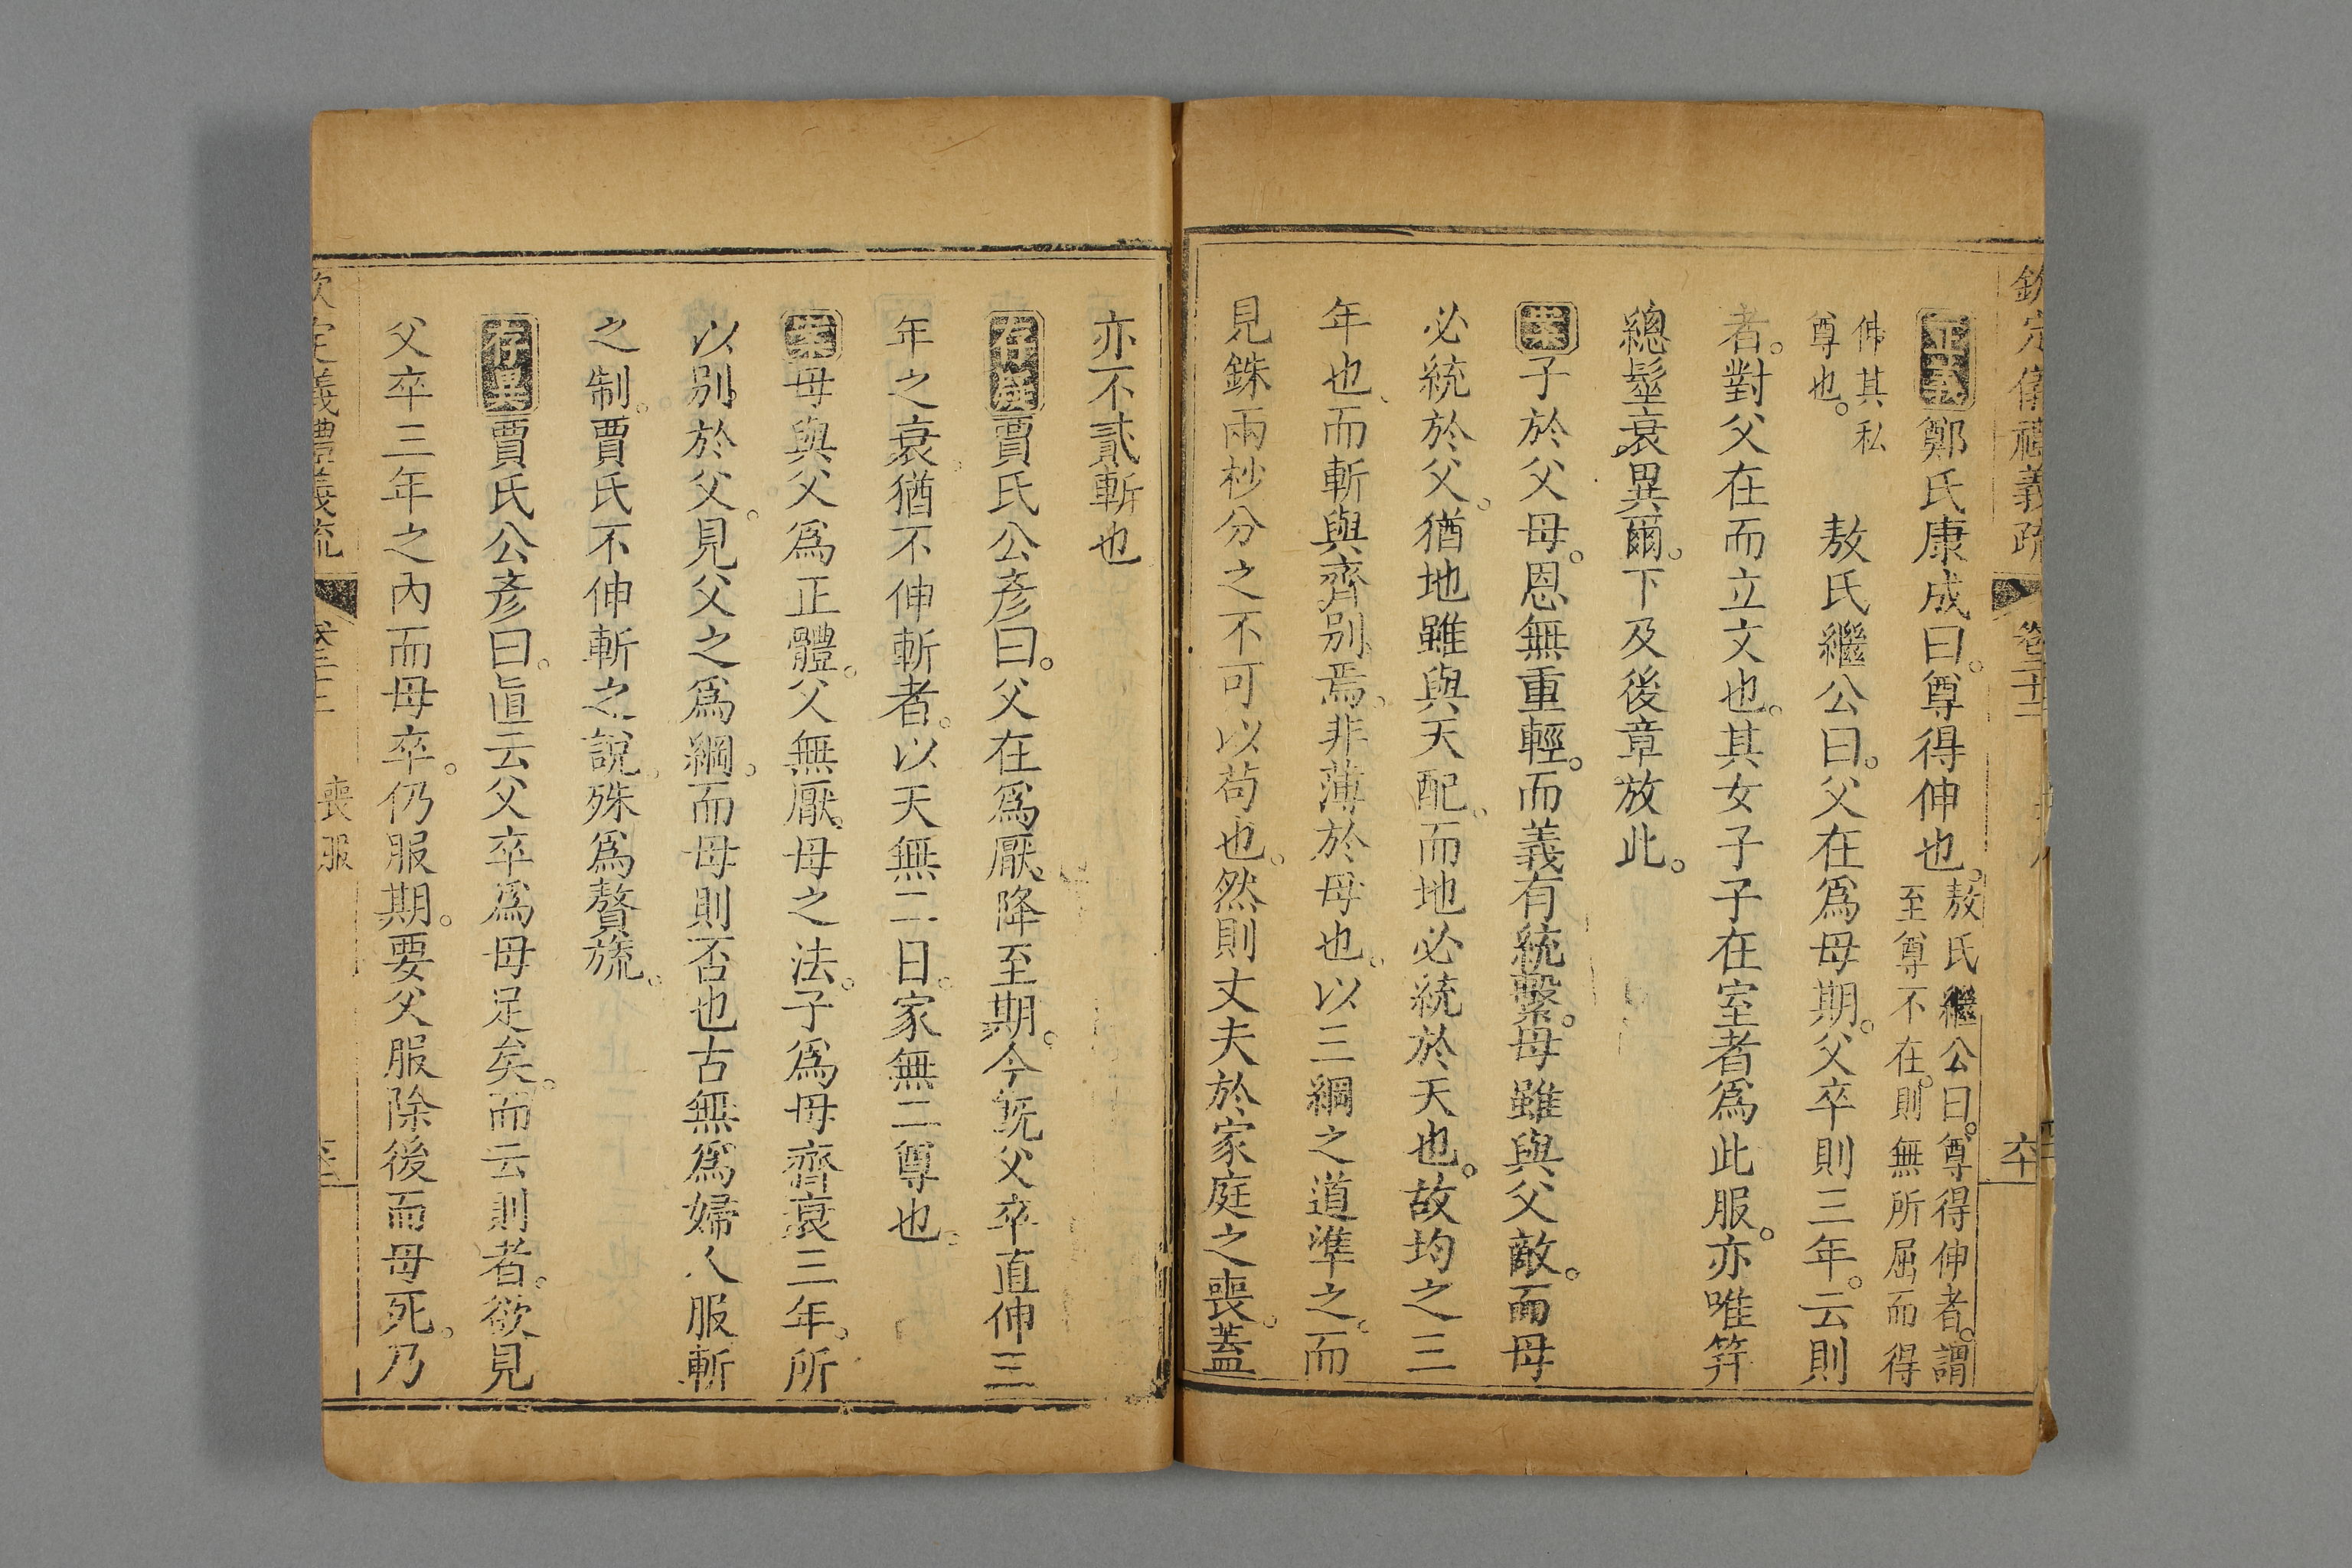 欽定儀禮義疏 卷二十二
正義鄭氏康成曰。尊得伸也。敖氏繼公曰。尊得伸者。謂
至尊不在。則無所屈而得
伸其私
尊也。
敖氏繼公曰。父在爲母期。父卒則三年。云則
者。對父在而立文也。其女子子在室者爲此服。亦唯笄
總髽衰異爾。下及後章放此。
案子於父母。恩無重輕。而義有統繫。母雖與父敵。而母
必統於父。猶地雖與天配。而地必統於天也。故均之三
年也、而斬與齊別焉。非薄於母也。以三綱之道準之。而
見銖兩杪分之不可以苟也。然則丈夫於家庭之喪。蓋
亦不貳斬也
存疑賈氏公彥曰。父在爲厭。降至期。今旣父卒直伸三
年之衰。猶不伸斬者。以天無二日。家無二尊也。
案母與父爲正體。父無厭母之法。子爲母齊衰三年。所
以別於父。見父之爲綱。而母則否也古無爲婦人服斬
之制。賈氏不伸斬之說。殊爲贅旒。
存異賈氏公彥曰。直云父卒爲母足矣。而云則者。欲見
父卒三年之內而母卒。仍服期。要父服除後而母死。乃
欽定義禮義疏 喪服